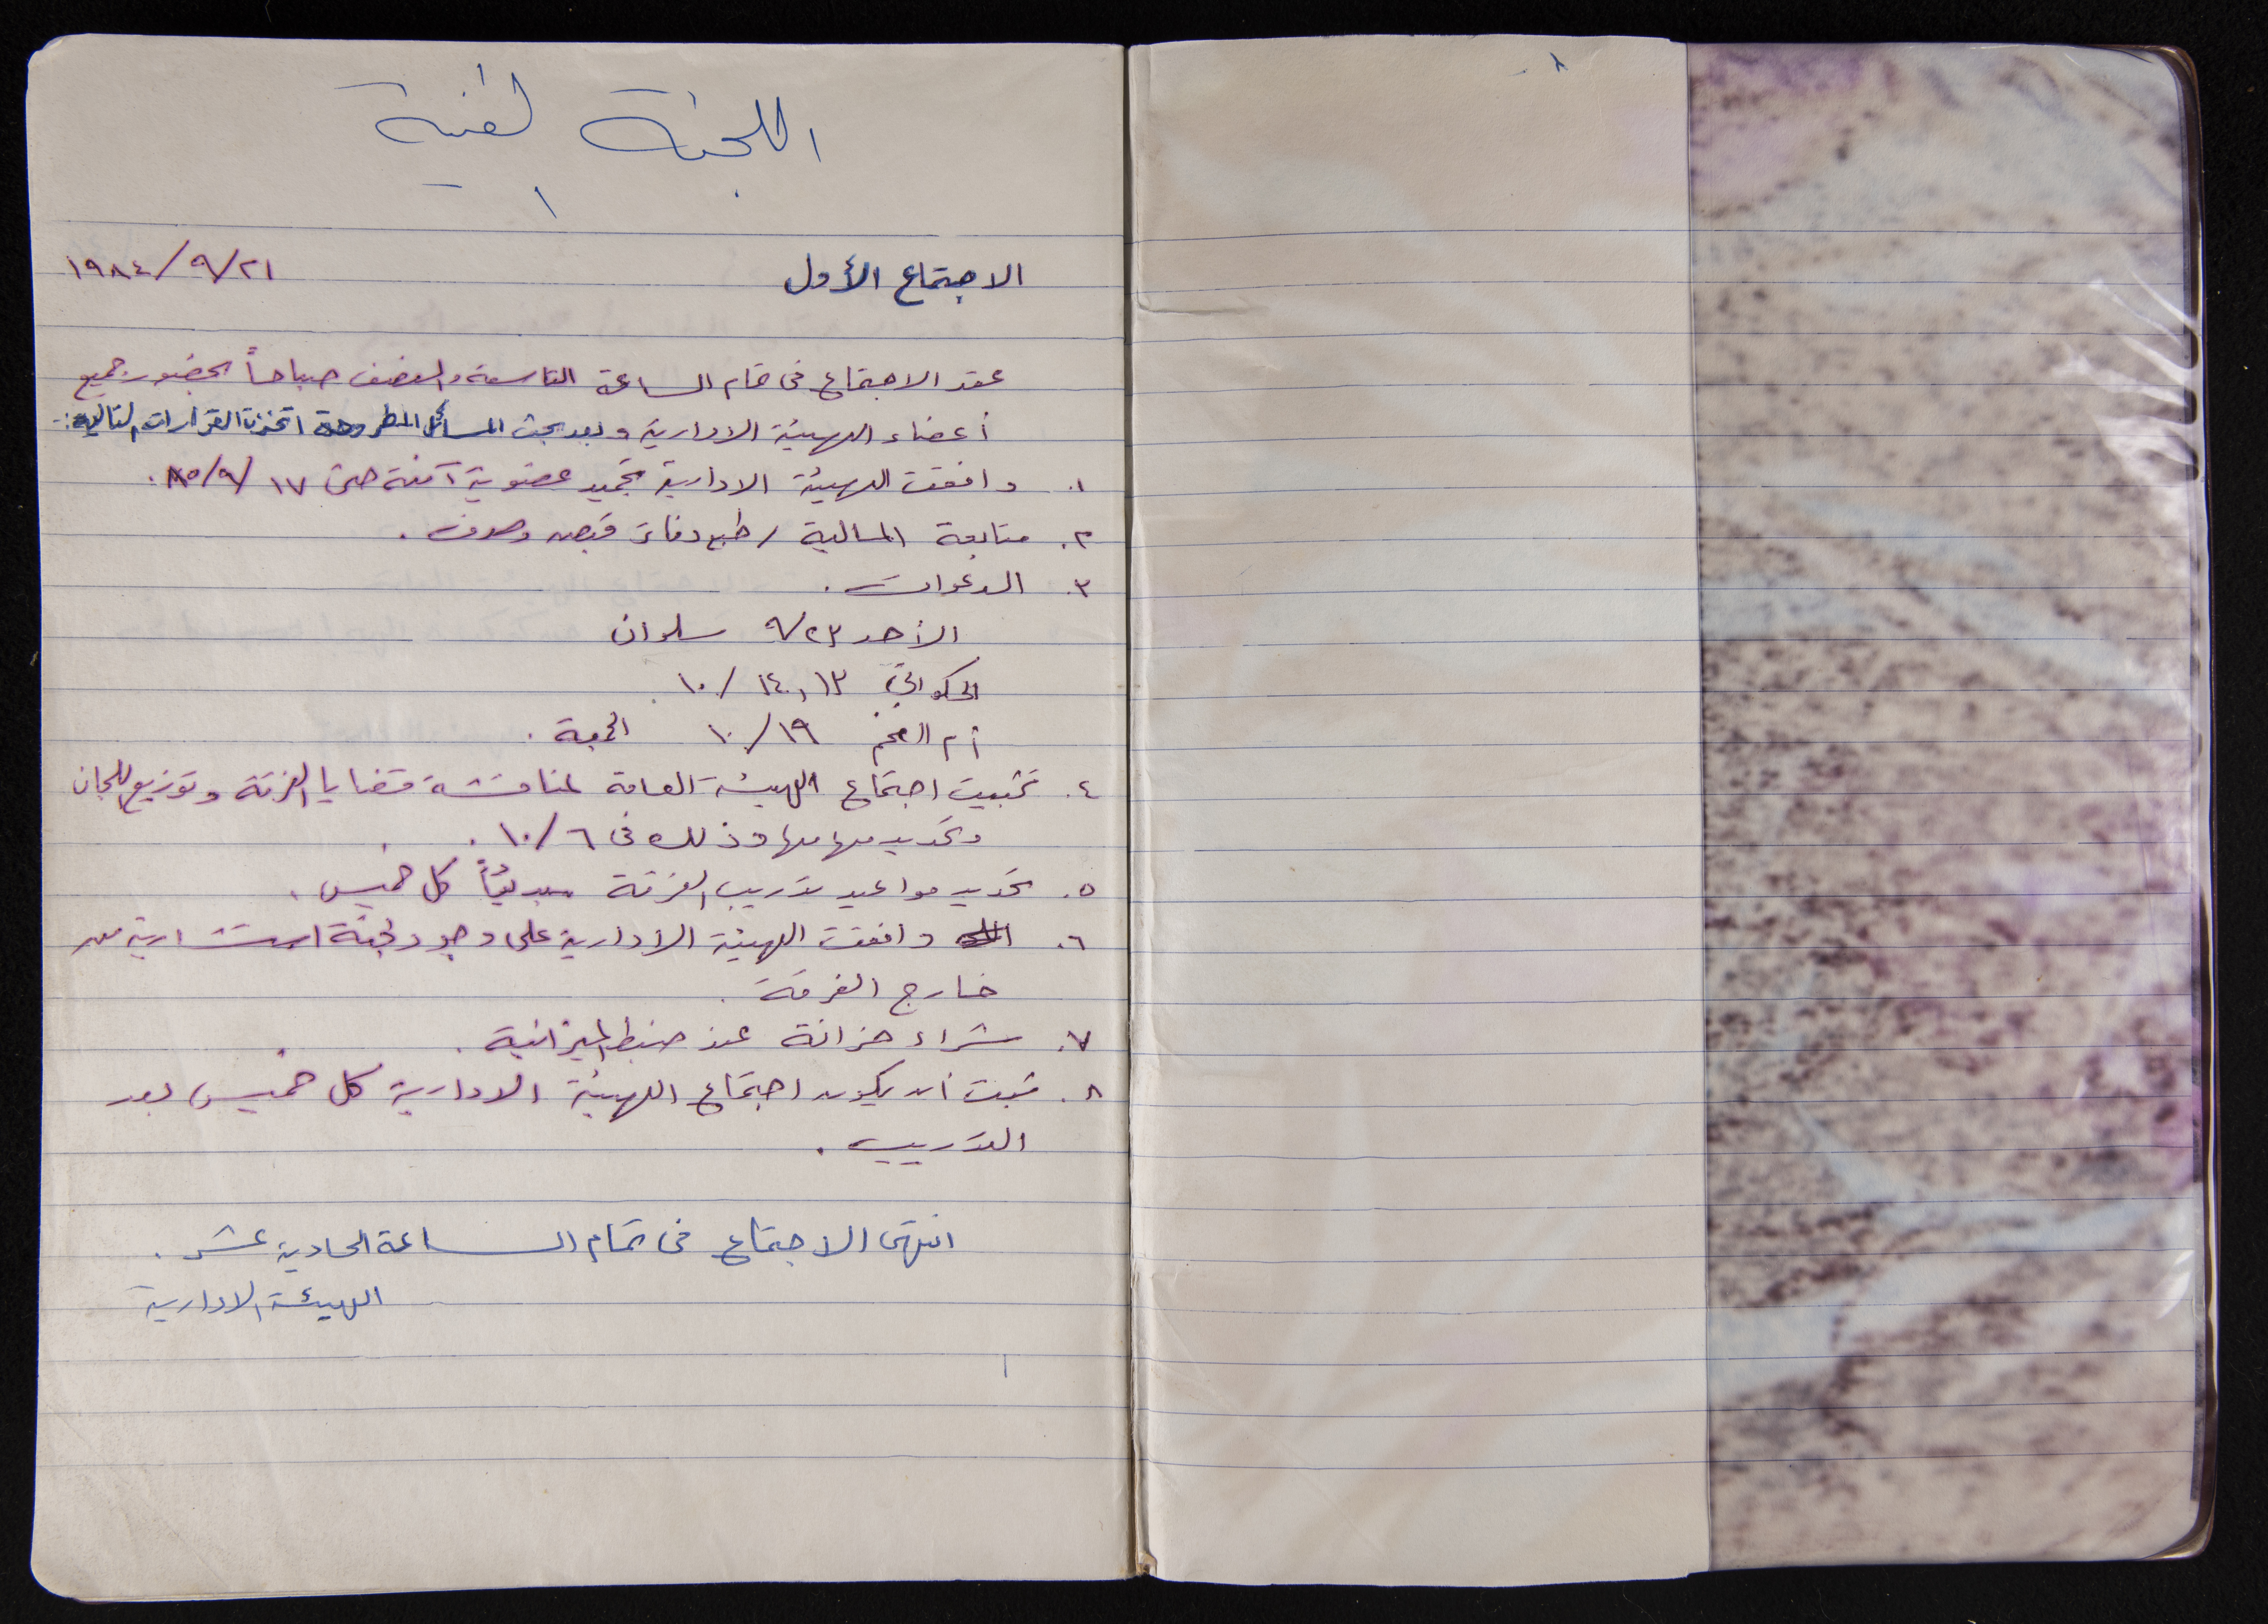 اللجنة الفنية
١
الاجتماع الأول ٢١/٩/١٩٨٤
عقد الاجتماع في تمام الساعة التاسعة والنصف صباحاً بحضور جميع
أعضاء الهيئة الادارية وبعد بحث المسائل المطروحة اتخذت القرارات التالية:-
١. وافقت الهيئة الادارية تجميد عضوية آمنة حتى ١٧/٩/٨٥.
٢. متابعة المالية / طبع دفاتر قبض وصرف.
٣. الدعوات.
الأحد ٢٣/٩ سلوان
الحكواتي ١٣، ١٤/١٠.
أم الفحم ١٩/١٠ الجمعة.
٤. تثبيت اجتماع الهيئة العامة لمناقشة قضايا الفرقة وتوزيع اللجان
وتحديد مهامها وذلك في ٦/١٠.
٥. تحديد مواعيد تدريب الفرقة مبدئياً كل خميس.
٦. وافقت الهيئة الادارية على وجود لجنة استشارية من
خارج الفرقة.
٧. شراء خزانة عند ضبط الميزانية.
٨. ثبت أن يكون اجتماع الهيئة الادارية كل خميس بعد
التدريب.
انتهى الاجتماع في تمام الساعة الحادية عشر.
الهيئة الادارية